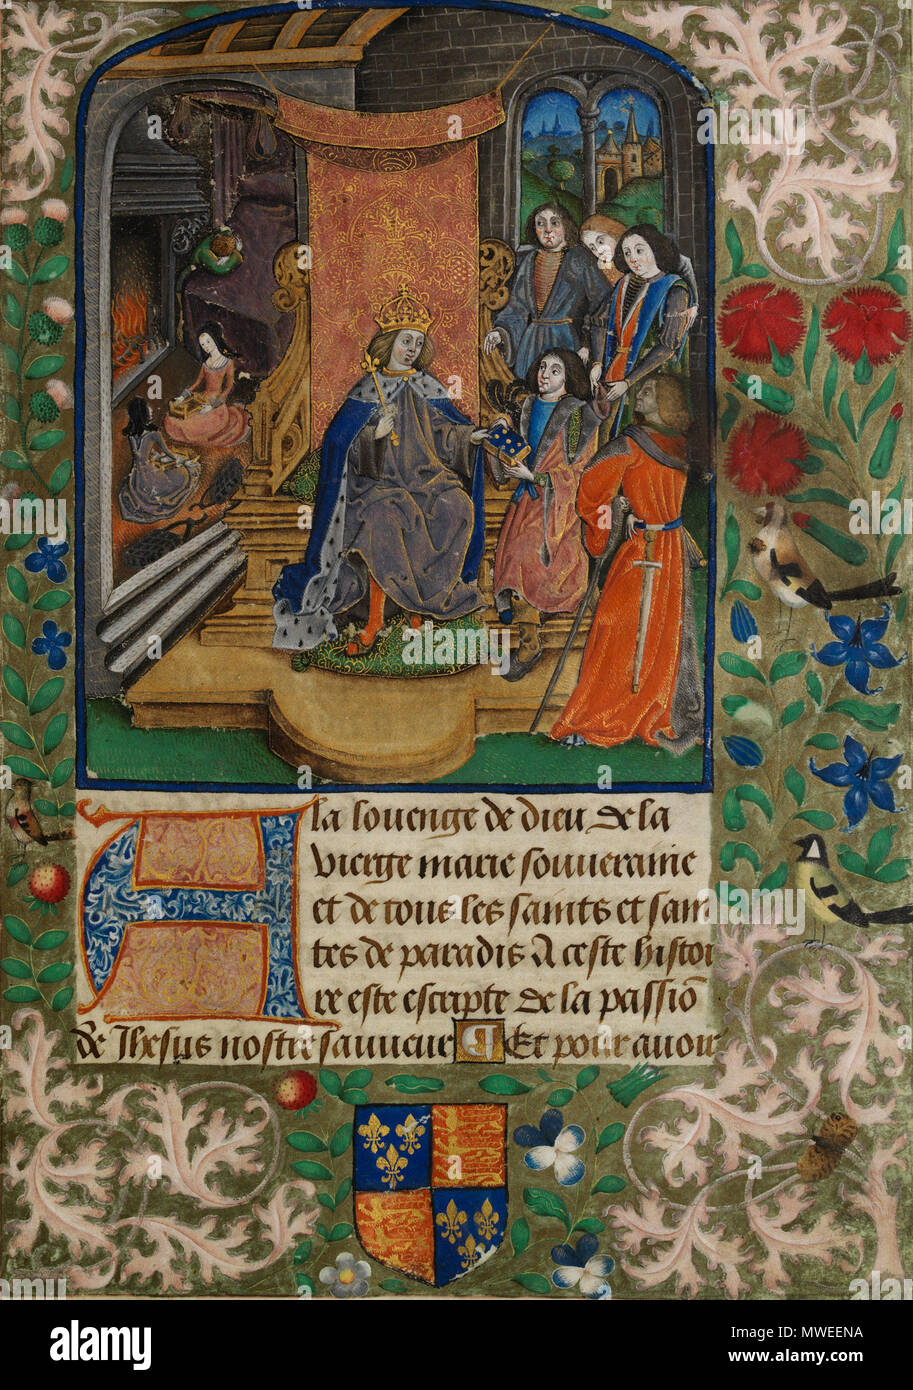 A la louenge de dieu de la
vierge marie souueraine
et de tous les saints et sain
tes de paradis A ceste histoi
re este escripte de la passiō
de Ihesus nostre sauueur Et pour auoir
alamy
Image ID: MWEENA
www.alamy.com